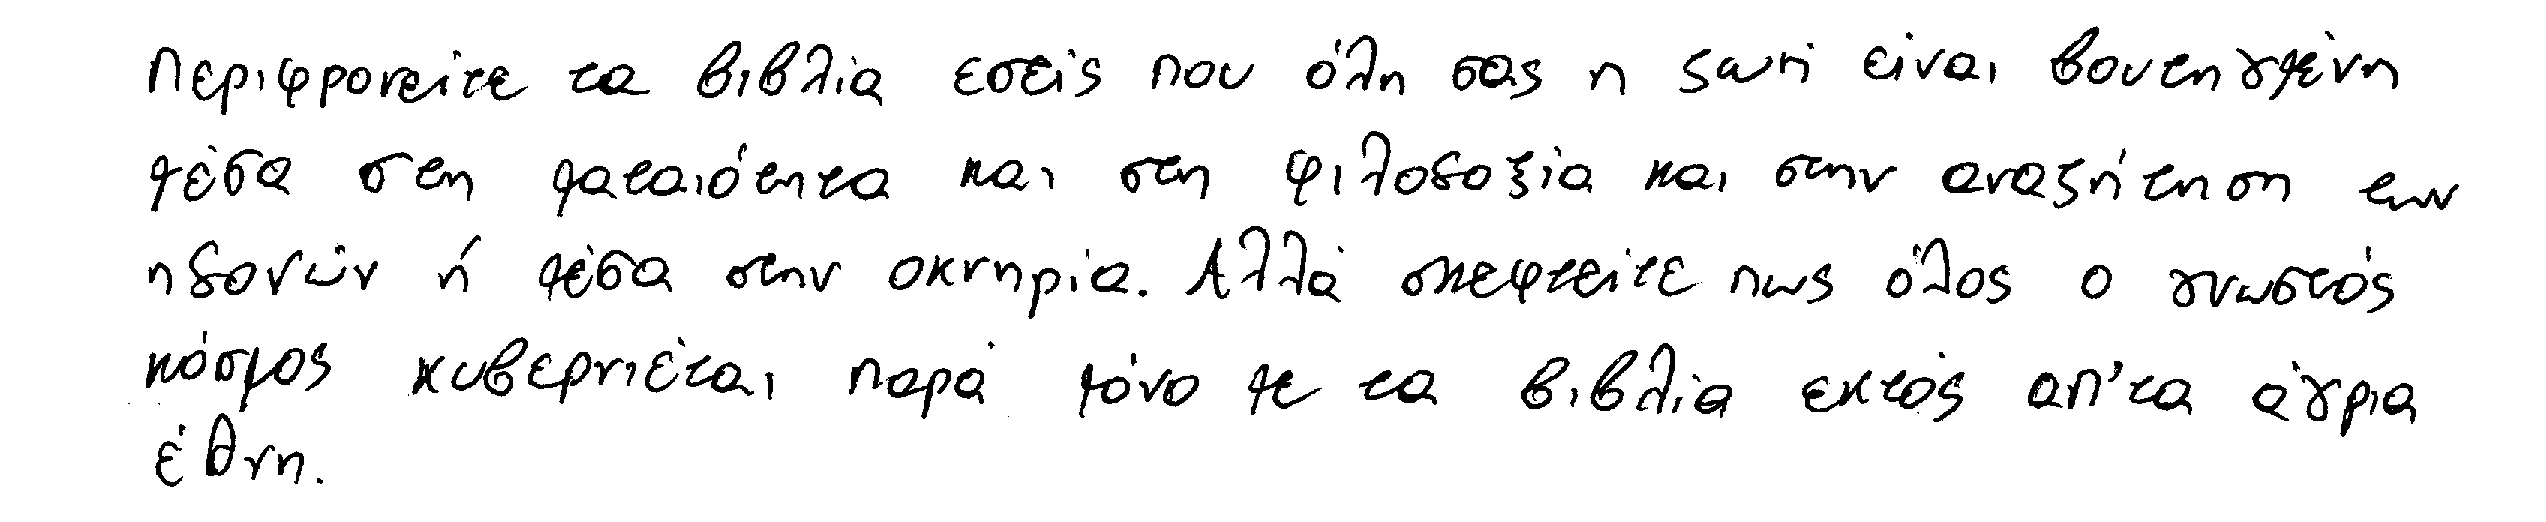 Περιφρονείτε τα βιβλία εσείς που όλη σας η ζωή είναι βουτηγμένη
μέσα στη ματαιότητα και στη φιλοδοξία και στην αναζήτηση των
ηδονών ή μέσα στην οκνηρία. Αλλά σκεφτείτε πως όλος ο γνωστός
κόσμος κυβερνιέται παρά μόνο με τα βιβλία εκτός απ'τα άγρια
έθνη.